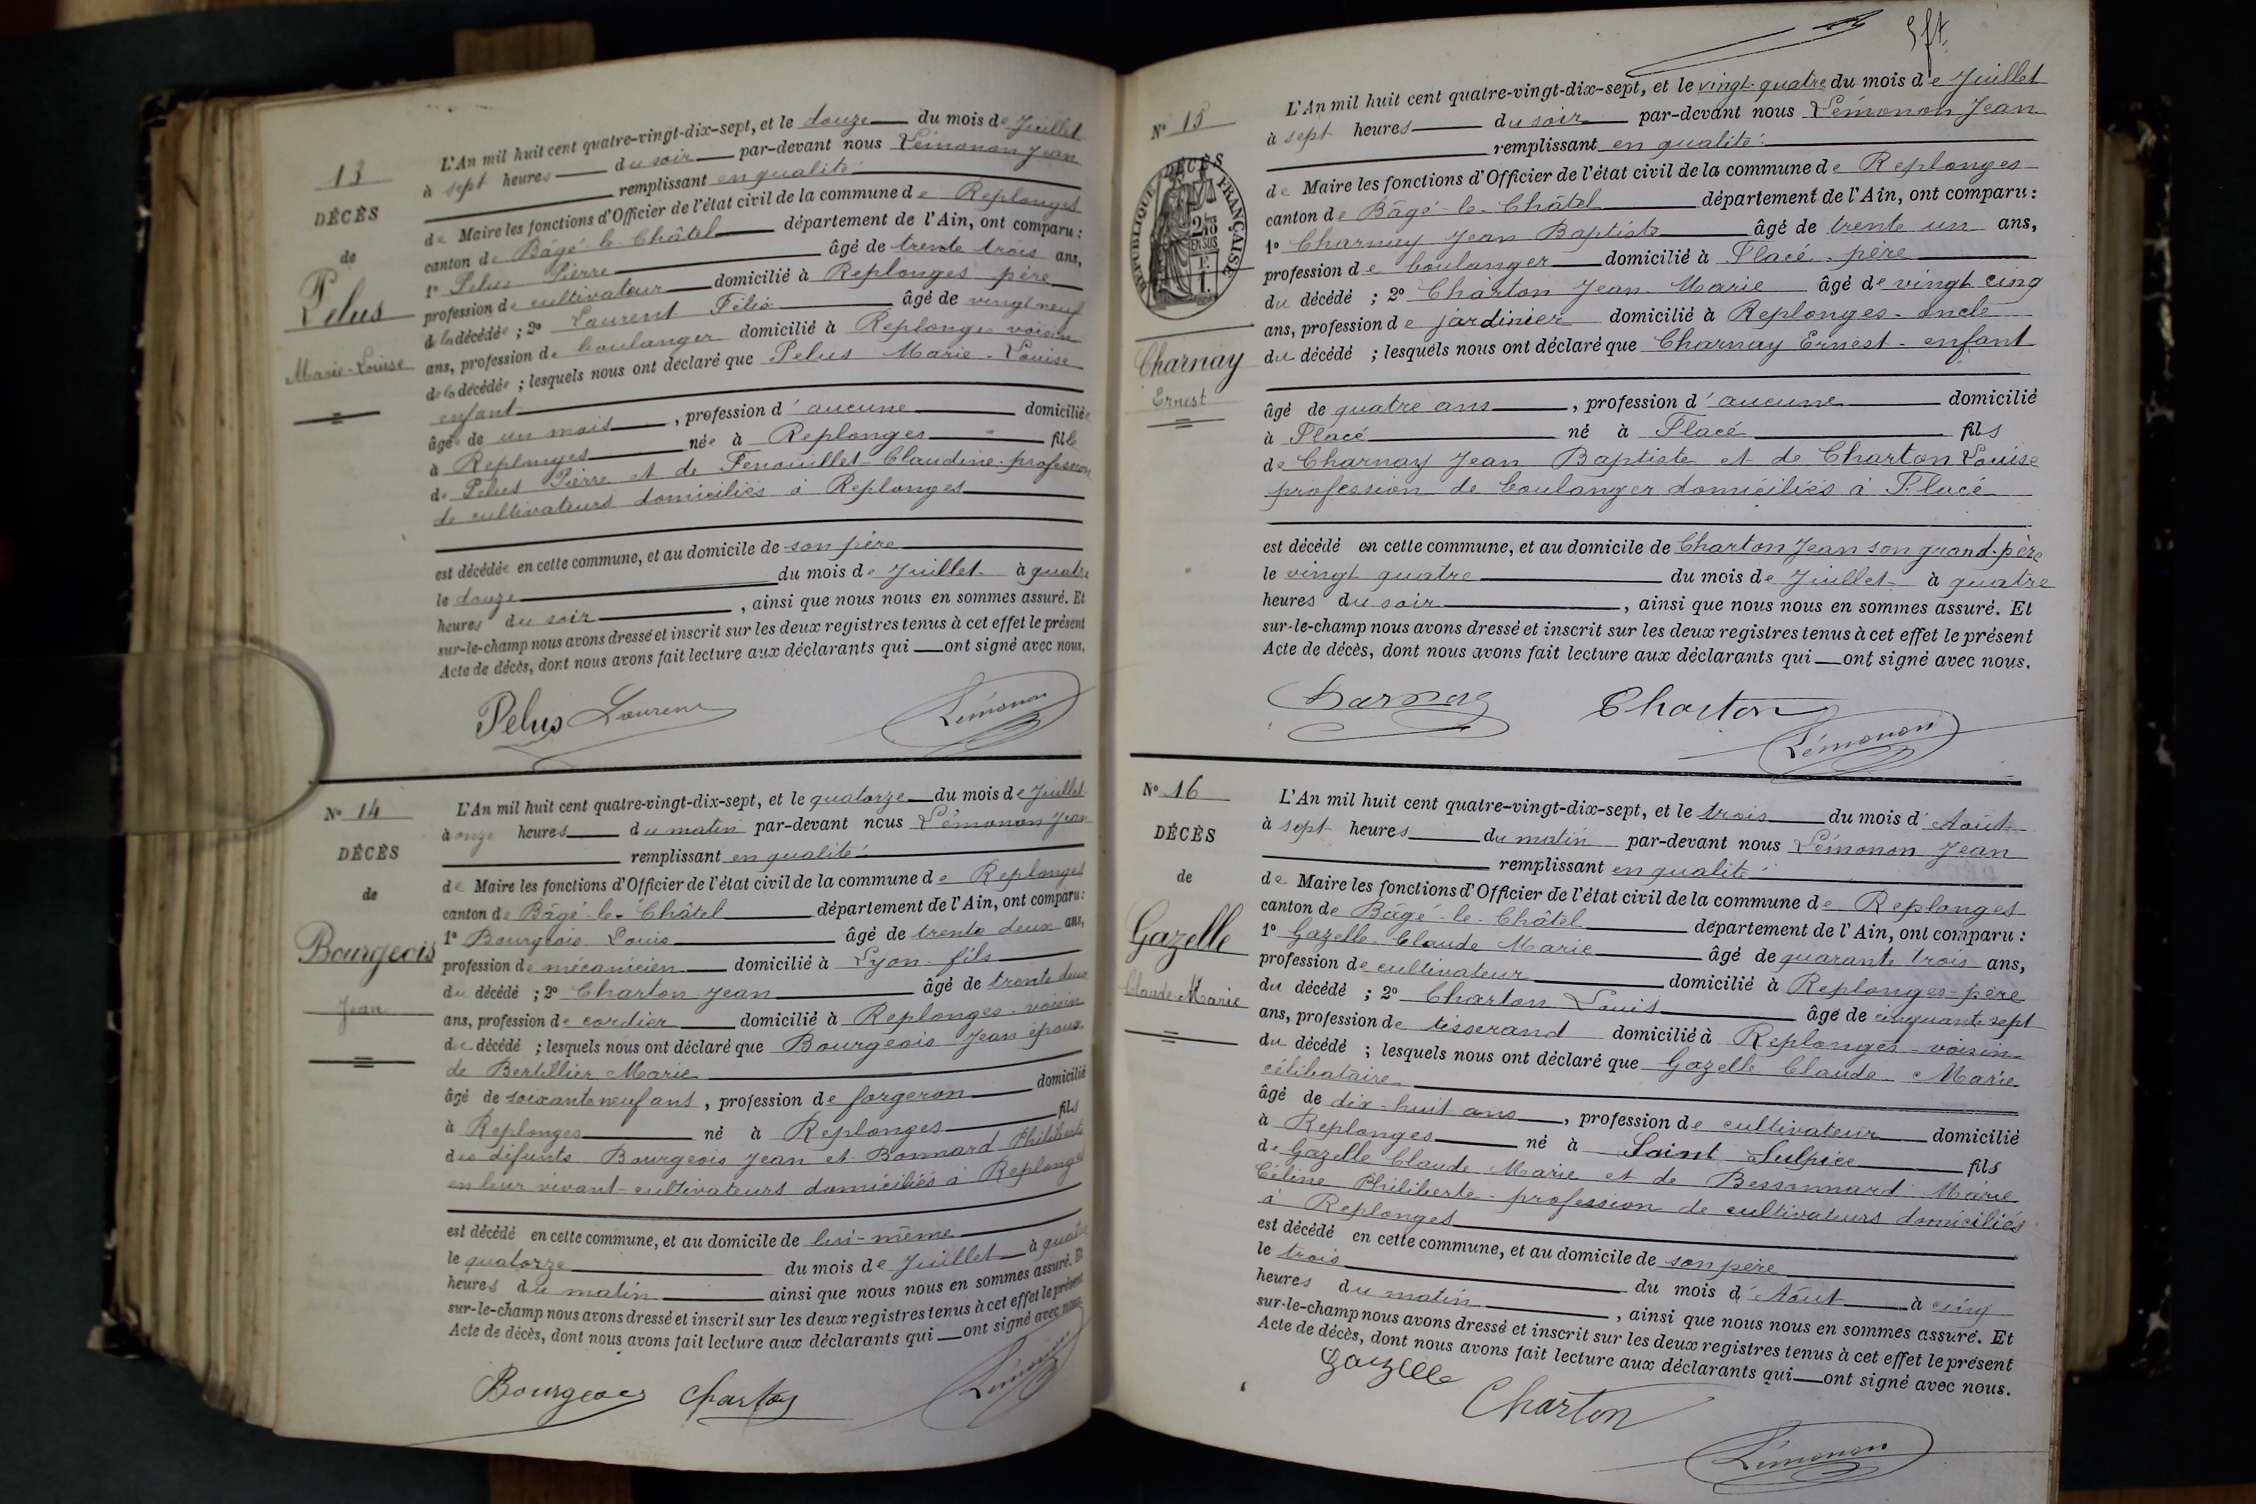 13
DÉCÈS
de
Pelus
Marie-Louise
L'An mil huit cent quatre-vingt-dix-sept, et le douze du mois de Juillet
à sept heures du soir par-devant nous Lémonon Jean
remplissant en qualité
de Maire les fonctions d'Officier de l'état civil de la commune de Replonges
canton de Bâgé-le-Châtel département de l'Ain, ont comparu :
1º Pelus Pierre âgé de trente trois ans,
profession de cultivateur domicilié à Replonges père
de la décédée ; 2º Laurent Félix âgé de vingt neuf
ans, profession de boulanger domicilié à Replonges voisin
de la décédée ; lesquels nous ont déclaré que Pelus Marie-Louise
enfant
âgée de un mois , profession d'aucune domiciliée
à Replonges née à Replonges fille
de Pelus Pierre et de Fenouillet Claudine profession
de cultivateurs domiciliés à Replonges
est décédée en cette commune, et au domicile de son père
le douze du mois de Juillet à quatre
heures du soir , ainsi que nous nous en sommes assuré. Et
sur-le-champ nous avons dressé et inscrit sur les deux registres tenus à cet effet le présent
Acte de décès, dont nous avons fait lecture aux déclarants qui ont signé avec nous.
Pelus Laurent Lémonon
Nº 14
DÉCÈS
de
Bourgeois
Jean
L'An mil huit cent quatre-vingt-dix-sept, et le quatorze du mois de Juillet
à onze heures du matin par-devant nous Lémonon Jean
remplissant en qualité
de Maire les fonctions d'Officier de l'état civil de la commune de Replonges
canton de Bâgé-le-Châtel département de l'Ain, ont comparu :
1º Bourgeois Louis âgé de trente deux ans,
profession de mécanicien domicilié à Lyon fils
du décédé ; 2º Charton Jean âgé de trente deux
ans, profession de cordier domicilié à Replonges voisin
du décédé ; lesquels nous ont déclaré que Bourgeois Jean époux
de Bertillier Marie
âgé de soixante neuf ans , profession de forgeron domicilié
à Replonges né à Replonges fils
des défunts Bourgeois Jean et Bonnard Philiberte
en leur vivant cultivateurs domiciliés à Replonges
est décédé en cette commune, et au domicile de lui-même
le quatorze du mois de Juillet à quatre
heures du matin ainsi que nous nous en sommes assuré. Et
sur-le-champ nous avons dressé et inscrit sur les deux registres tenus à cet effet le présent
Acte de décès, dont nous avons fait lecture aux déclarants qui ont signé avec nous.
Bourgeois Charton Lémonon
Nº 15
DÉCÈS
RÉPUBLIQUE FRANÇAISE
2/10 EN SUS
Charnay
Ernest
L'An mil huit cent quatre-vingt-dix-sept, et le vingt-quatre du mois de Juillet
à sept heures du soir par-devant nous Lémonon Jean
remplissant en qualité :
de Maire les fonctions d'Officier de l'état civil de la commune de Replonges
canton de Bâgé-le-Châtel département de l'Ain, ont comparu :
1º Charnay Jean Baptiste âgé de trente un ans,
profession de boulanger domicilié à Flacé père
du décédé ; 2º Charton Jean Marie âgé de vingt cinq
ans, profession de jardinier domicilié à Replonges - oncle
du décédé ; lesquels nous ont déclaré que Charnay Ernest - enfant
âgé de quatre ans , profession d'aucune domicilié
à Flacé né à Flacé fils
de Charnay Jean Baptiste et de Charton Louise
profession de boulanger domiciliés à Flacé
est décédé en cette commune, et au domicile de Charton Jean son grand-père
le vingt quatre du mois de Juillet à quatre
heures du soir , ainsi que nous nous en sommes assuré. Et
sur-le-champ nous avons dressé et inscrit sur les deux registres tenus à cet effet le présent
Acte de décès, dont nous avons fait lecture aux déclarants qui ont signé avec nous.
Charnay Charton Lémonon
Nº 16
DÉCÈS
de
Gazelle
Claude-Marie
L'An mil huit cent quatre-vingt-dix-sept, et le trois du mois d'Août
à sept heures du matin par-devant nous Lémonon Jean
remplissant en qualité
de Maire les fonctions d'Officier de l'état civil de la commune de Replonges
canton de Bâgé-le-Châtel département de l'Ain, ont comparu :
1º Gazelle Claude Marie âgé de quarante trois ans,
profession de cultivateur domicilié à Replonges - père
du décédé ; 2º Charton Louis âgé de cinquante sept
ans, profession de tisserand domicilié à Replonges - voisin
du décédé ; lesquels nous ont déclaré que Gazelle Claude-Marie
célibataire
âgé de dix-huit ans , profession de cultivateur domicilié
à Replonges né à Saint Sulpice fils
de Gazelle Claude Marie et de Bessonnard Marie
Céline Philiberte - profession de cultivateurs domiciliés
à Replonges
est décédé en cette commune, et au domicile de son père
le trois du mois d'Août à cinq
heures du matin , ainsi que nous nous en sommes assuré. Et
sur-le-champ nous avons dressé et inscrit sur les deux registres tenus à cet effet le présent
Acte de décès, dont nous avons fait lecture aux déclarants qui ont signé avec nous.
Gazelle
Charton
Lémonon